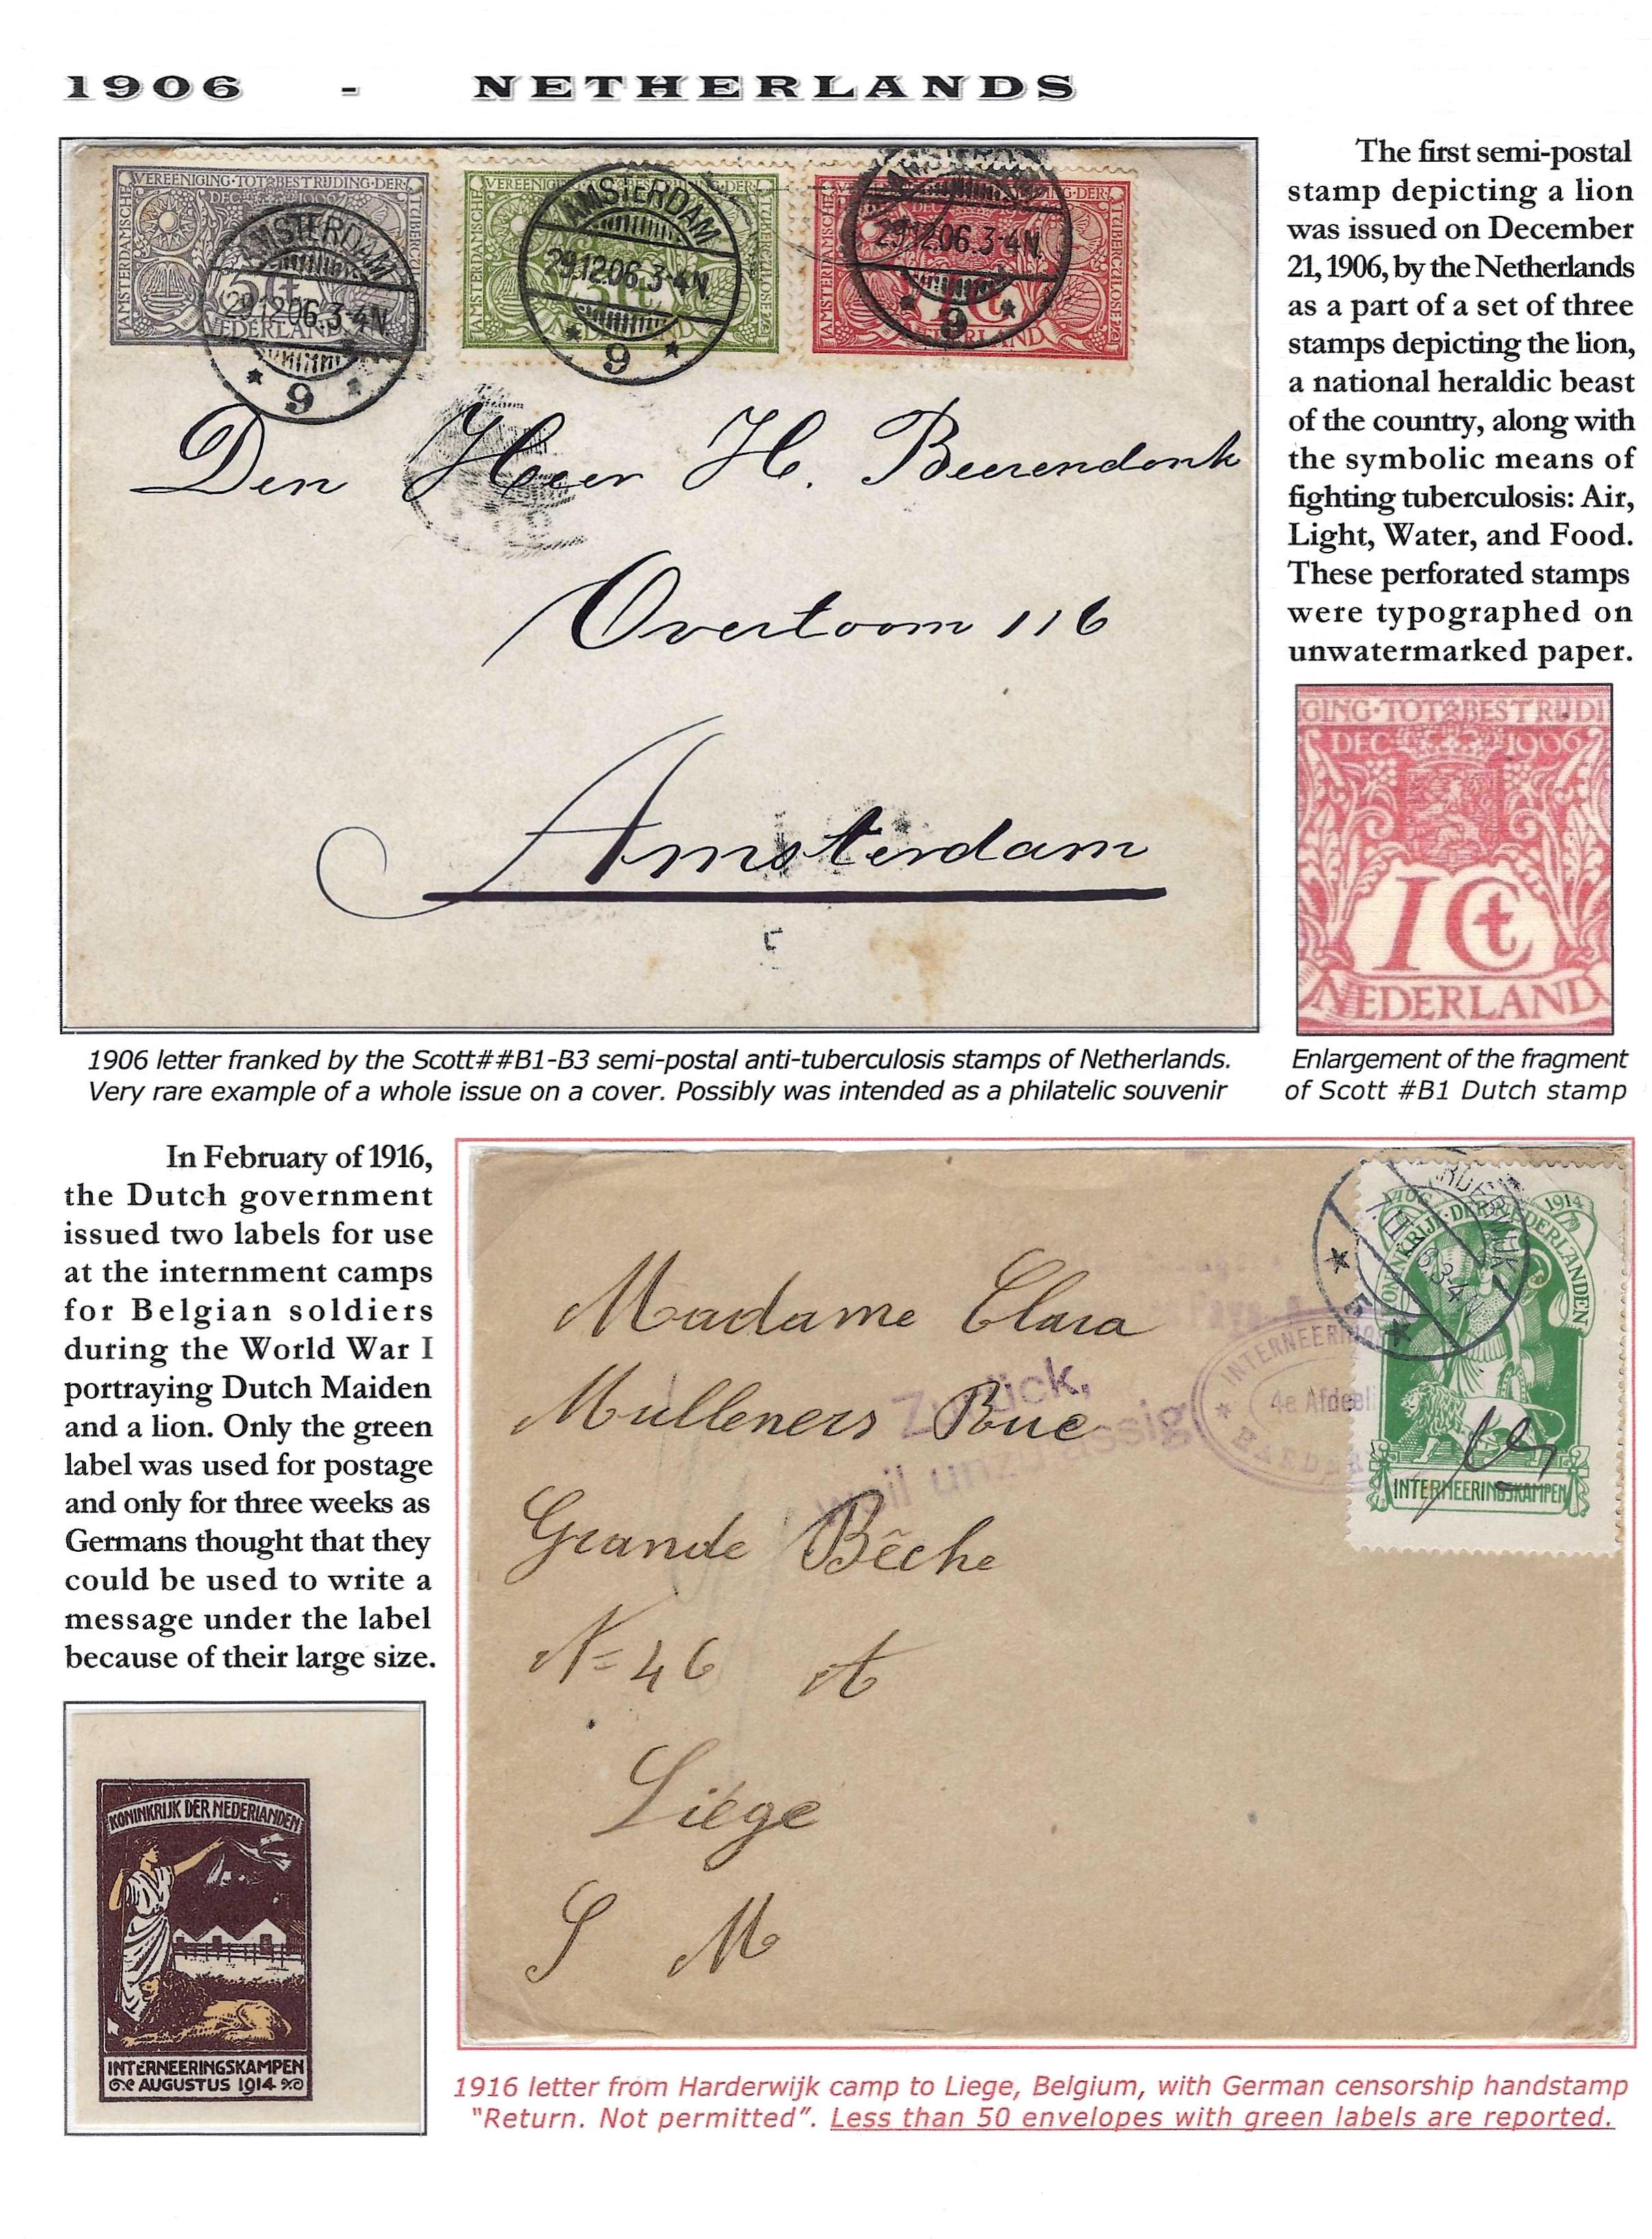 1906 - NETHERLANDS
VEREENIGING·TOT·BESTRIJDING·DER·
AMSTERDAMSCHE
TUBERCULOSE
DEC 1906
AMSTERDAM
29.12.06.3-4N.
9
NEDERLAND
VEREENIGING·TOT·BESTRIJDING·DER·
AMSTERDAM
29.12.06.3-4N.
9
29.12.06.3-4N.
9
NEDERLAND
Den Heer H. Beerendonk
Overtoom 116
Amsterdam
The first semi-postal
stamp depicting a lion
was issued on December
21, 1906, by the Netherlands
as a part of a set of three
stamps depicting the lion,
a national heraldic beast
of the country, along with
the symbolic means of
fighting tuberculosis: Air,
Light, Water, and Food.
These perforated stamps
were typographed on
unwatermarked paper.
GING·TOT·BESTRIJDI
DEC 1906
1 Ct
NEDERLAND
1906 letter franked by the Scott##B1-B3 semi-postal anti-tuberculosis stamps of Netherlands.
Very rare example of a whole issue on a cover. Possibly was intended as a philatelic souvenir
Enlargement of the fragment
of Scott #B1 Dutch stamp
In February of 1916,
the Dutch government
issued two labels for use
at the internment camps
for Belgian soldiers
during the World War I
portraying Dutch Maiden
and a lion. Only the green
label was used for postage
and only for three weeks as
Germans thought that they
could be used to write a
message under the label
because of their large size.
KONINKRIJK DER NEDERLANDEN
INTERNEERINGSKAMPEN
AUGUSTUS 1914
AUG 1914
KONINKRIJK·DER·NEDERLANDEN
INTERNEERINGSKAMPEN
4e Afdeeli
Zurück,
weil unzulässig
Madame Clara
Mulleners Rue
Grande Bêche
N= 46 A
Liége
S M
1916 letter from Harderwijk camp to Liege, Belgium, with German censorship handstamp
"Return. Not permitted". Less than 50 envelopes with green labels are reported.